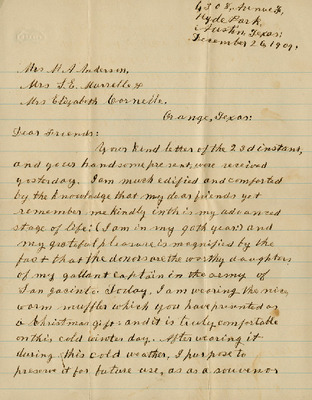 4308, Avenue F,
Hyde Park,
Austin, Texas:
December 26, 1909.
Mrs. H. A. Anderson,
Mrs. T. E. Murrell &
Mrs. Elizabeth Cornelle.
Orange, Texas:
Dear Friends:
Your kind letter of the 23d instant,
and your handsome present, were received
yesterday. I am much edified and comforted
by the knowledge that my dear friends yet
remember me kindly in this my advanced
stage of life: (I am in my 90th year) and
my grateful pleasure is magnified by the
fact that the donors are the worthy daughters
of my gallant captain in the army of
San Jacinto. Today, I am wearing the nice
warm muffler which you have presented as
a Christmas gift: and it is truly comfortable
on this cold winter day. After wearing it
during this cold weather, I purpose to
preserve it for future use, as a souvenir